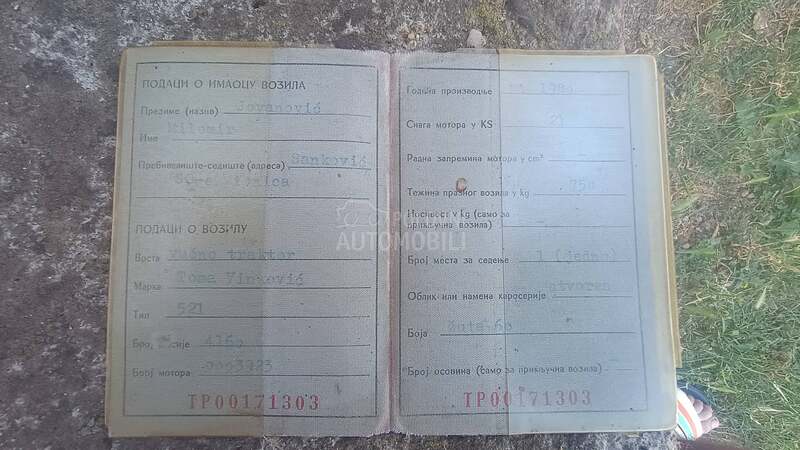 ПОДАЦИ О ИМАОЦУ ВОЗИЛА
Презиме (назив) Jovanović
Име Milomir
Пребивалиште-седиште (адреса) Sanković
ПОДАЦИ О ВОЗИЛУ
Врста traktor
Марка Toma Vinković
Тип 521
Број
Број мотора
TP00171303
Година производње
Снага мотора у KS 21
Радна запремина мотора у cm³
Тежина празног возила у kg
Носивост у kg (само за
прикључна возила)
Број места за седење 1 (jedno)
Облик или намена каросерије otvoren
Боја Žuta
Број осовина (само за прикључна возила)
TP00171303
AUTOMOBILI